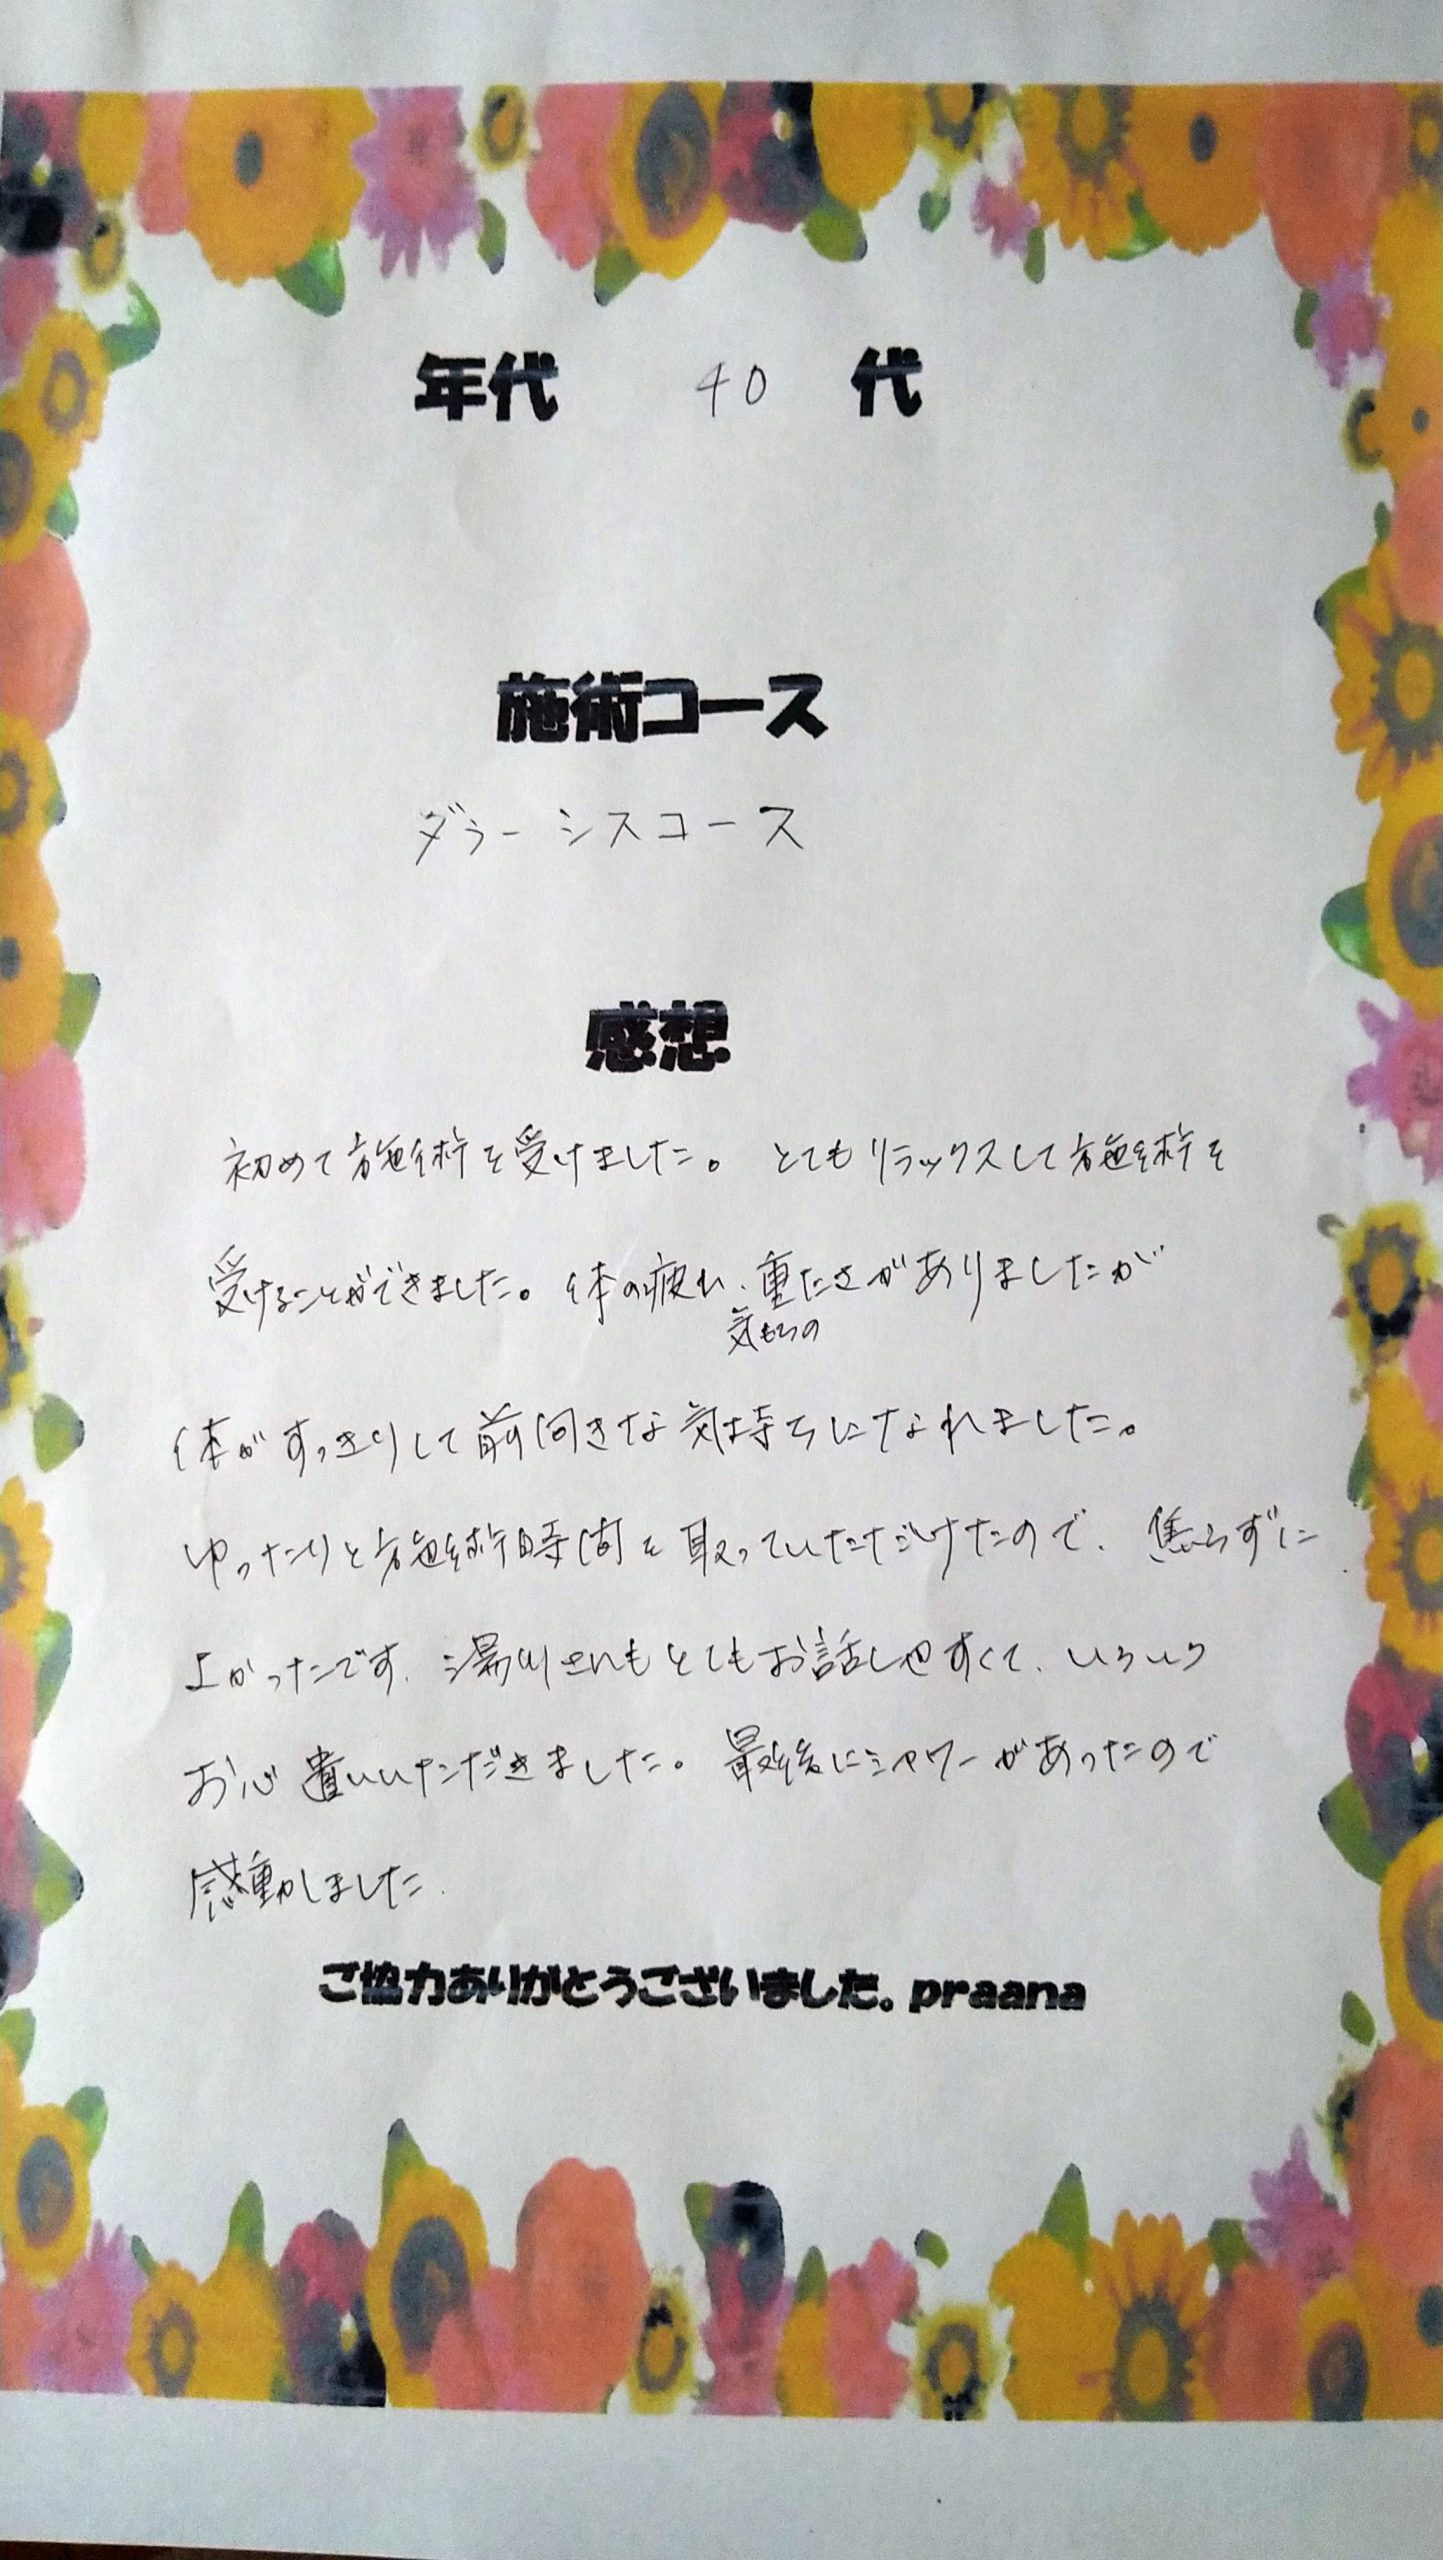 年代 40 代
施術コース
ダラーシスコース
感想
初めて施術を受けました。とてもリラックスして施術を
受けることができました。体の疲れ、重たさがありましたが
気もちの
体がすっきりして前向きな気持ちになれました。
ゆったりと施術時間を取っていただけたので、焦らずに
よかったです。湯川さんもとてもお話しやすくて、いろいろ
お心遣いいただきました。最後にシャワーがあったので
感動しました。
ご協力ありがとうございました。praana